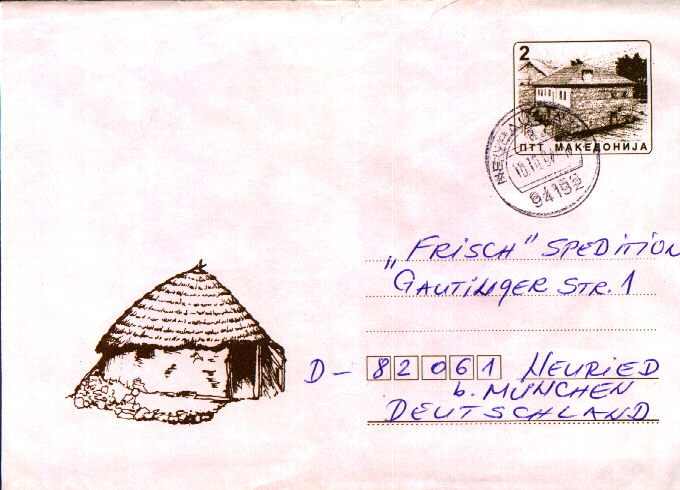 2
ПТТ МАКЕДОНИЈА
94152
„FRISCH" SPEDITION
GAUTINGER STR. 1
D - 82061 NEURIED
b. MÜNCHEN
DEUTSCHLAND